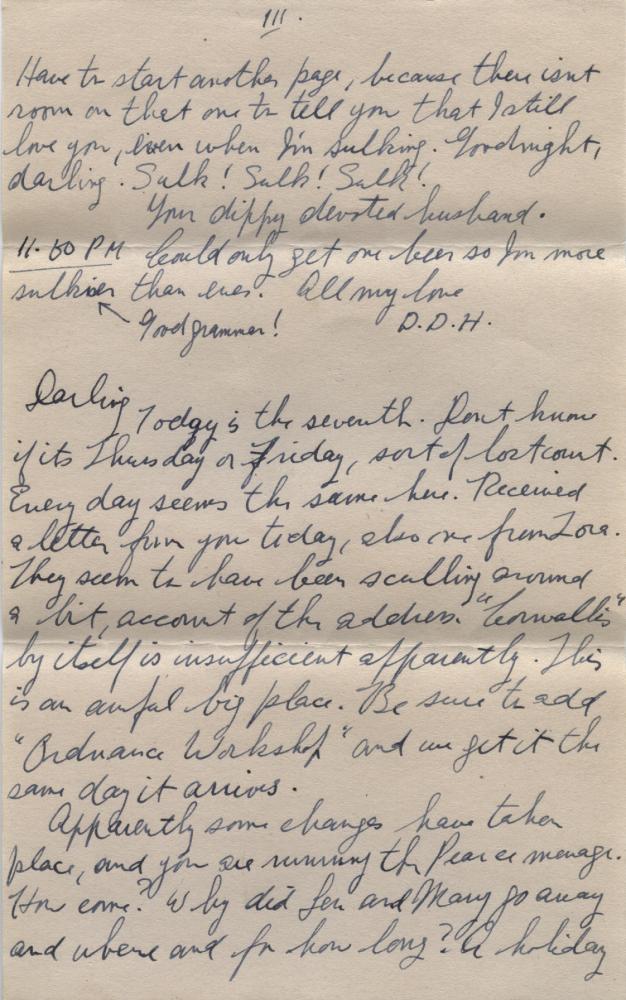 III.
Have to start another page, because there isnt
room on that one to tell you that I still
love you, even when I'm sulking. Goodnight,
darling. Sulk! Sulk! Sulk!
Your dippy devoted husband.
11.50 PM Could only get one beer so I'm more
sulkier than ever. All my love
Good grammer! D.D.H.
Darling Today is the seventh. Dont know
if its Thursday or Friday, sort of lost count.
Every day seems the same here. Received
a letter from you today, also one from Lora.
They seem to have been sculling around
a bit, account of the address. "Cornwallis"
by itself is insufficient apparently. This
is an awful big place. Be sure to add
"Ordnance Workshop" and we get it the
same day it arrives.
Apparently some changes have taken
place, and you are running the Pearce menage.
How come? Why did Len and Mary go away
and where and for how long? A holiday